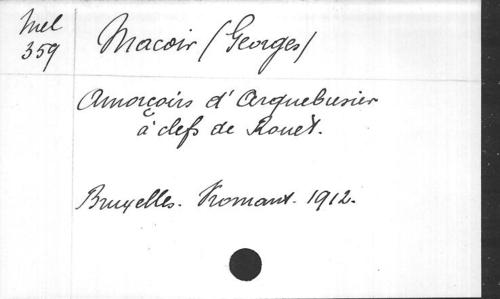 Mel
359
Macoir (Georges)
Amorçoirs d'Arquebusier
à clefs de Rouet.
Bruxelles. Vromant. 1912.